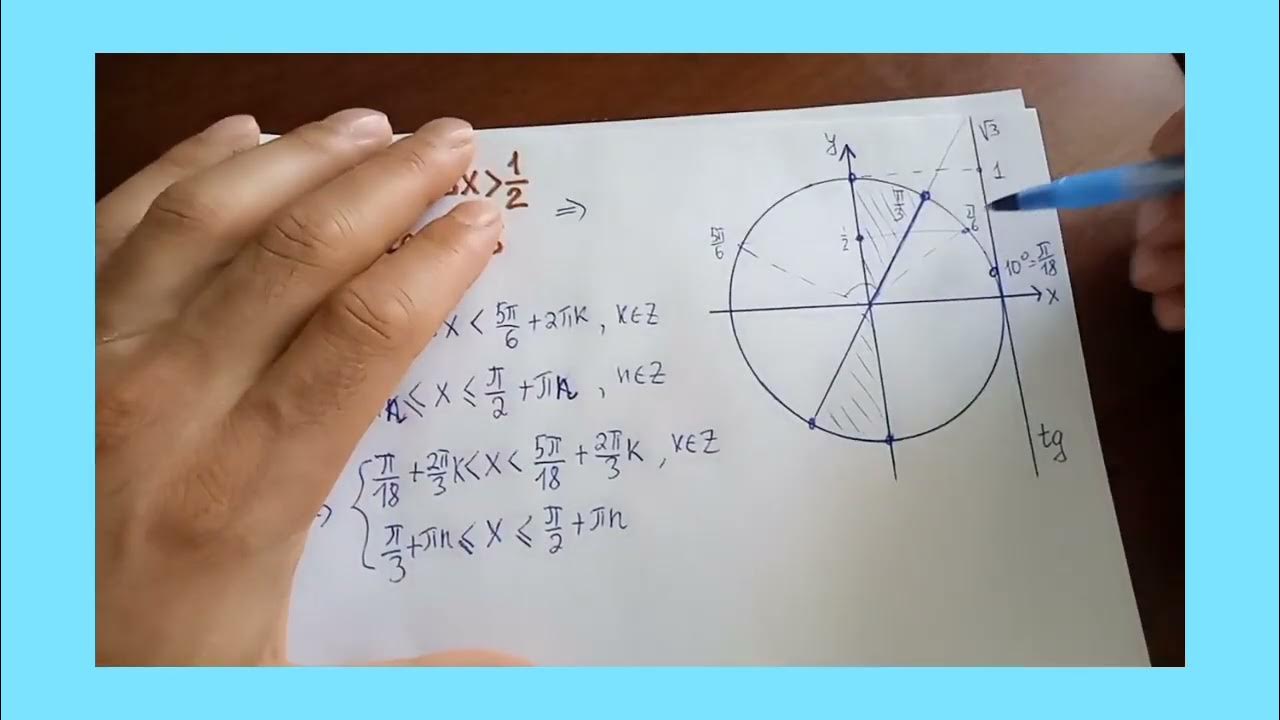 x > 1/2
⇒
x < 5π/6 + 2πk , k∈Z
≤ x ≤ π/2 + πn , n∈Z
π/18 + 2π/3 k < x < 5π/18 + 2π/3 k , k∈Z
π/3 + πn ≤ x ≤ π/2 + πn
y
√3
1
π/3
π/6
1/2
5π/6
10° = π/18
x
tg